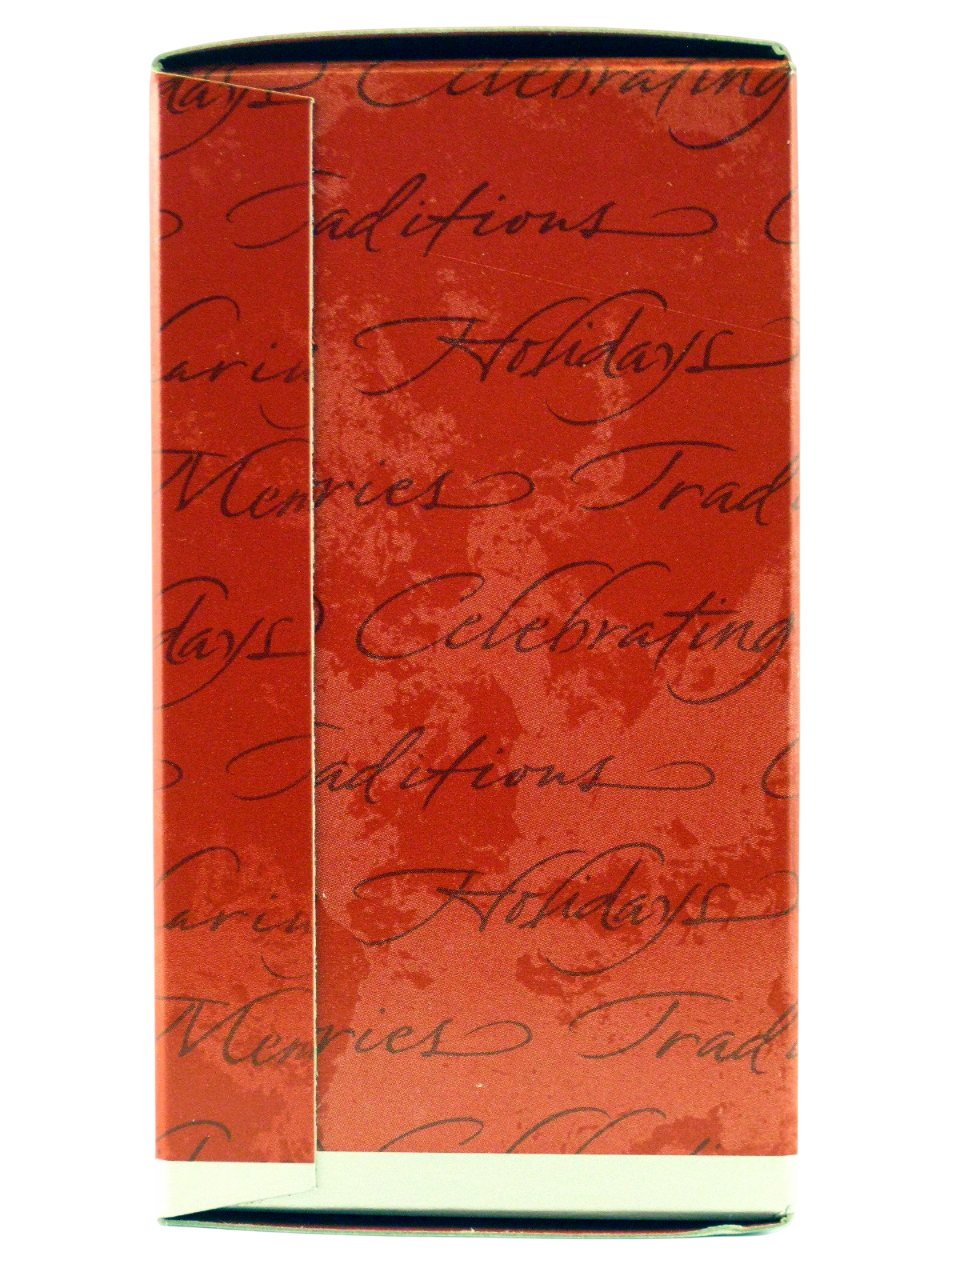 days Celebrating
Taditions C
arin Holidays
Memries Trad
days Celebrating
Taditions C
arin Holidays
Memries Trad